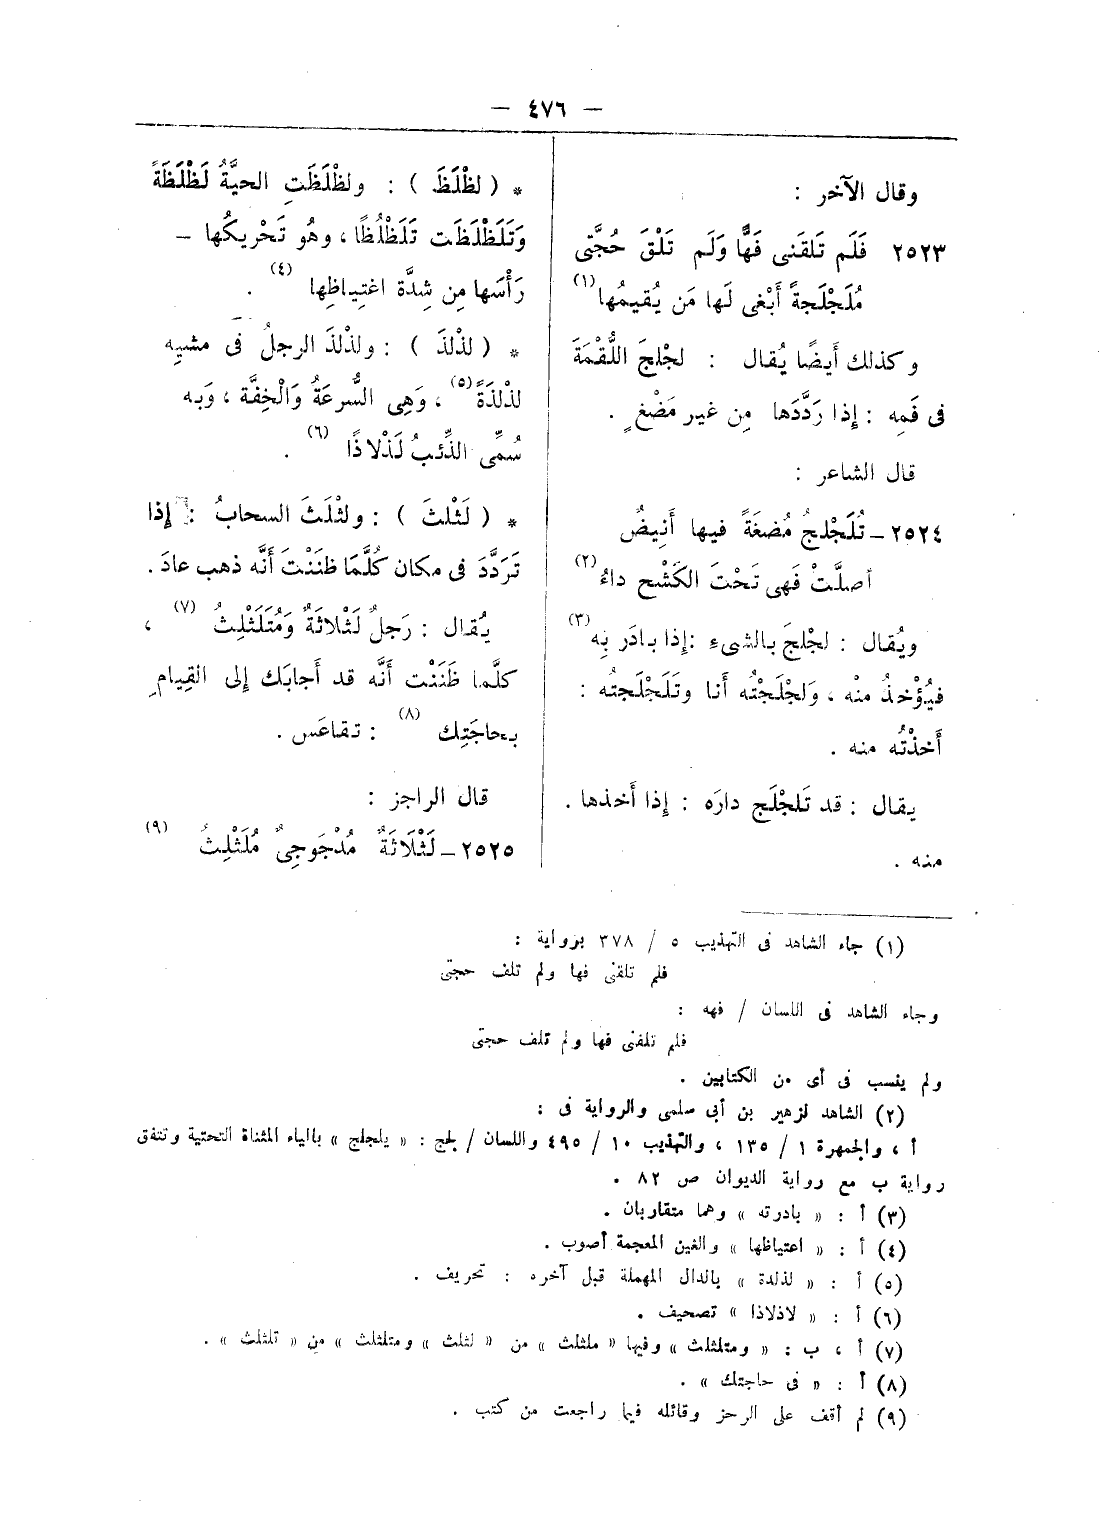 — ٤٧٦ —
وقال الآخر :
٢٥٢٣ فَلَم تَلقَنى فَهًّا وَلَم تَلْقَ حُجَّتى
مُلَجْلَجةً أَبْغى لَها مَن يُقيمُها (١)
وكذلك أَيضًا يُقال : لجْلجَ اللُّقْمَةَ
فى فَمِه : إِذا رَدَّدَها مِن غير مَضْغٍ .
قال الشاعر :
٢٥٢٤ – تُلَجْلجُ مُضغَةً فيها أَنِيضٌ
أَصلَّتْ فَهى تَحْتَ الكَشْحِ داءُ (٢)
ويُقال : لجْلجَ بالشىءِ : إِذا بادَر بِه (٣)
فيُؤْخذُ منْه ، وَلجْلَجْتُه أَنا وتَلَجْلَجتُه :
أَخذْتُه منه .
يقال : قد تَلجْلَج دارَه : إِذا أَخذها .
منه .
* ( لظْلَظَ ) : ولظْلَظَتِ الحيَّةُ لَظْلَظَةً
وَتَلَظْلَظَت تَلَظْلُظًا ، وهُو تَحْريكُها –
رَأْسَها مِن شِدَّة اغتِياظِها (٤) .
* ( لذْلذَ ) : ولذْلذَ الرجلُ فى مشيِه
لذْلذَةً (٥) ، وَهِى السُّرعَةُ وَالْخِفَّة ، وَبه
سُمِّى الذِّئبُ لَذْلاذًا (٦) .
* ( لَثْلثَ ) : ولثْلَثَ السحابُ : إِذا
تَردَّدَ فى مكان كُلَّمَا ظنَنْتَ أَنَّه ذهب عادَ .
يُقال : رَجلٌ لَثْلاثَةٌ وَمُتَلَثْلِثٌ (٧) ،
كلَّما ظَنَنْت أَنَّه قد أَجابَك إِلى القِيامِ
بحاجَتِك (٨) : تقاعَس .
قال الراجز :
٢٥٢٥ – لَثْلَاثَةٌ مُدْجَوجِىٌ مُلَثْلِثُ (٩)
(١) جاء الشاهد فى التهذيب ٥ / ٣٧٨ برواية :
فلم تلقنى فها ولم تلف حجتى
وجاء الشاهد فى اللسان / فهه :
فلم تلفنى فها ولم تلف حجتى
ولم ينسب فى أى من الكتابين .
(٢) الشاهد لزهير بن أبى سلمى والرواية فى :
أ ، والجمهرة ١ / ١٣٥ ، والتهذيب ١٠ / ٤٩٥ واللسان / لجج : « يلجلج » بالياء المثناة التحتية وتتفق
رواية ب مع رواية الديوان ص ٨٢ .
(٣) أ : « بادرته » وهما متقاربان .
(٤) أ : « اعتياظها » والغين المعجمة أصوب .
(٥) أ : « لذلدة » بالدال المهملة قبل آخره : تحريف .
(٦) أ : « لاذلاذا » تصحيف .
(٧) أ ، ب : « ومتلثلث » وفيها « ملثلث » من « لثلث » ومتلثلث » من « تلثلث » .
(٨) أ : « فى حاجتك » .
(٩) لم أقف على الرجز وقائله فيما راجعت من كتب .